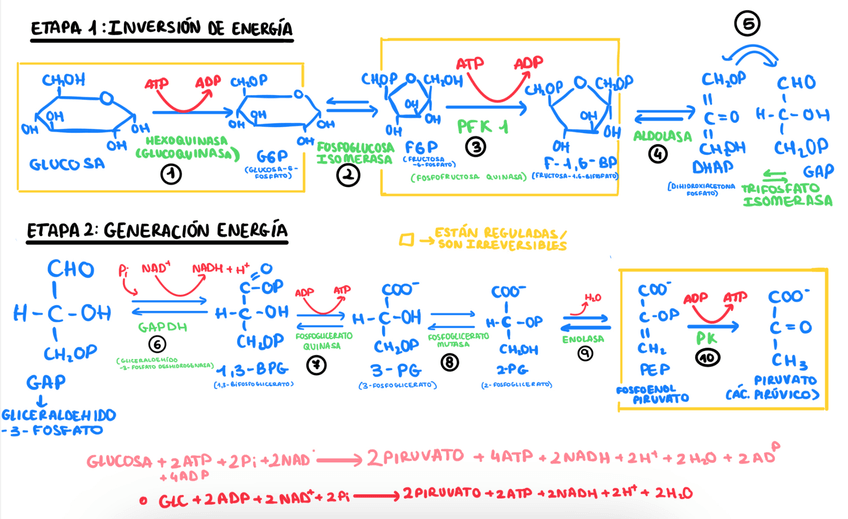 ETAPA 1: INVERSIÓN DE ENERGÍA
CH₂OH
OH
OH
OH
OH
GLUCOSA
ATP
ADP
HEXOQUINASA
(GLUCOQUINASA)
1
CH₂OP
OH
OH
OH
OH
G6P
(GLUCOSA-6-
FOSFATO)
FOSFOGLUCOSA
ISOMERASA
2
CH₂OP
CH₂OH
OH
OH
OH
F6P
(FRUCTOSA
-6-FOSFATO)
ATP
ADP
PFK 1
3
(FOSFOFRUCTOSA QUINASA)
CH₂OP
CH₂OP
OH
OH
OH
F-1,6-BP
(FRUCTOSA-1,6-BIFOSFATO)
ALDOLASA
4
5
CH₂OP
C=O
CH₂OH
DHAP
(DIHIDROXIACETONA
FOSFATO)
CHO
H-C-OH
CH₂OP
GAP
TRIFOSFATO
ISOMERASA
ETAPA 2: GENERACIÓN ENERGÍA
→ ESTÁN REGULADAS/
SON IRREVERSIBLES
CHO
H-C-OH
CH₂OP
GAP
↓
GLICERALDEHIDO
-3-FOSFATO
Pi NAD⁺ NADH + H⁺
GAPDH
6
(GLICERALDEHÍDO
-3-FOSFATO DESHIDROGENASA)
O
C-OP
H-C-OH
CH₂OP
1,3-BPG
(1,3-BIFOSFOGLICERATO)
ADP
ATP
FOSFOGLICERATO
QUINASA
7
COO⁻
H-C-OH
CH₂OP
3-PG
(3-FOSFOGLICERATO)
FOSFOGLICERATO
MUTASA
8
COO⁻
H-C-OP
CH₂OH
2-PG
(2-FOSFOGLICERATO)
H₂O
ENOLASA
9
COO⁻
C-OP
CH₂
PEP
FOSFOENOL
PIRUVATO
ADP
ATP
PK
10
COO⁻
C=O
CH₃
PIRUVATO
(ÁC. PIRÚVICO)
GLUCOSA + 2ATP + 2Pi + 2NAD⁻ → 2 PIRUVATO + 4ATP + 2NADH + 2H⁺ + 2H₂O + 2ADP
+ 4ADP
GLC + 2ADP + 2NAD⁺ + 2Pi → 2PIRUVATO + 2ATP + 2NADH + 2H⁺ + 2H₂O